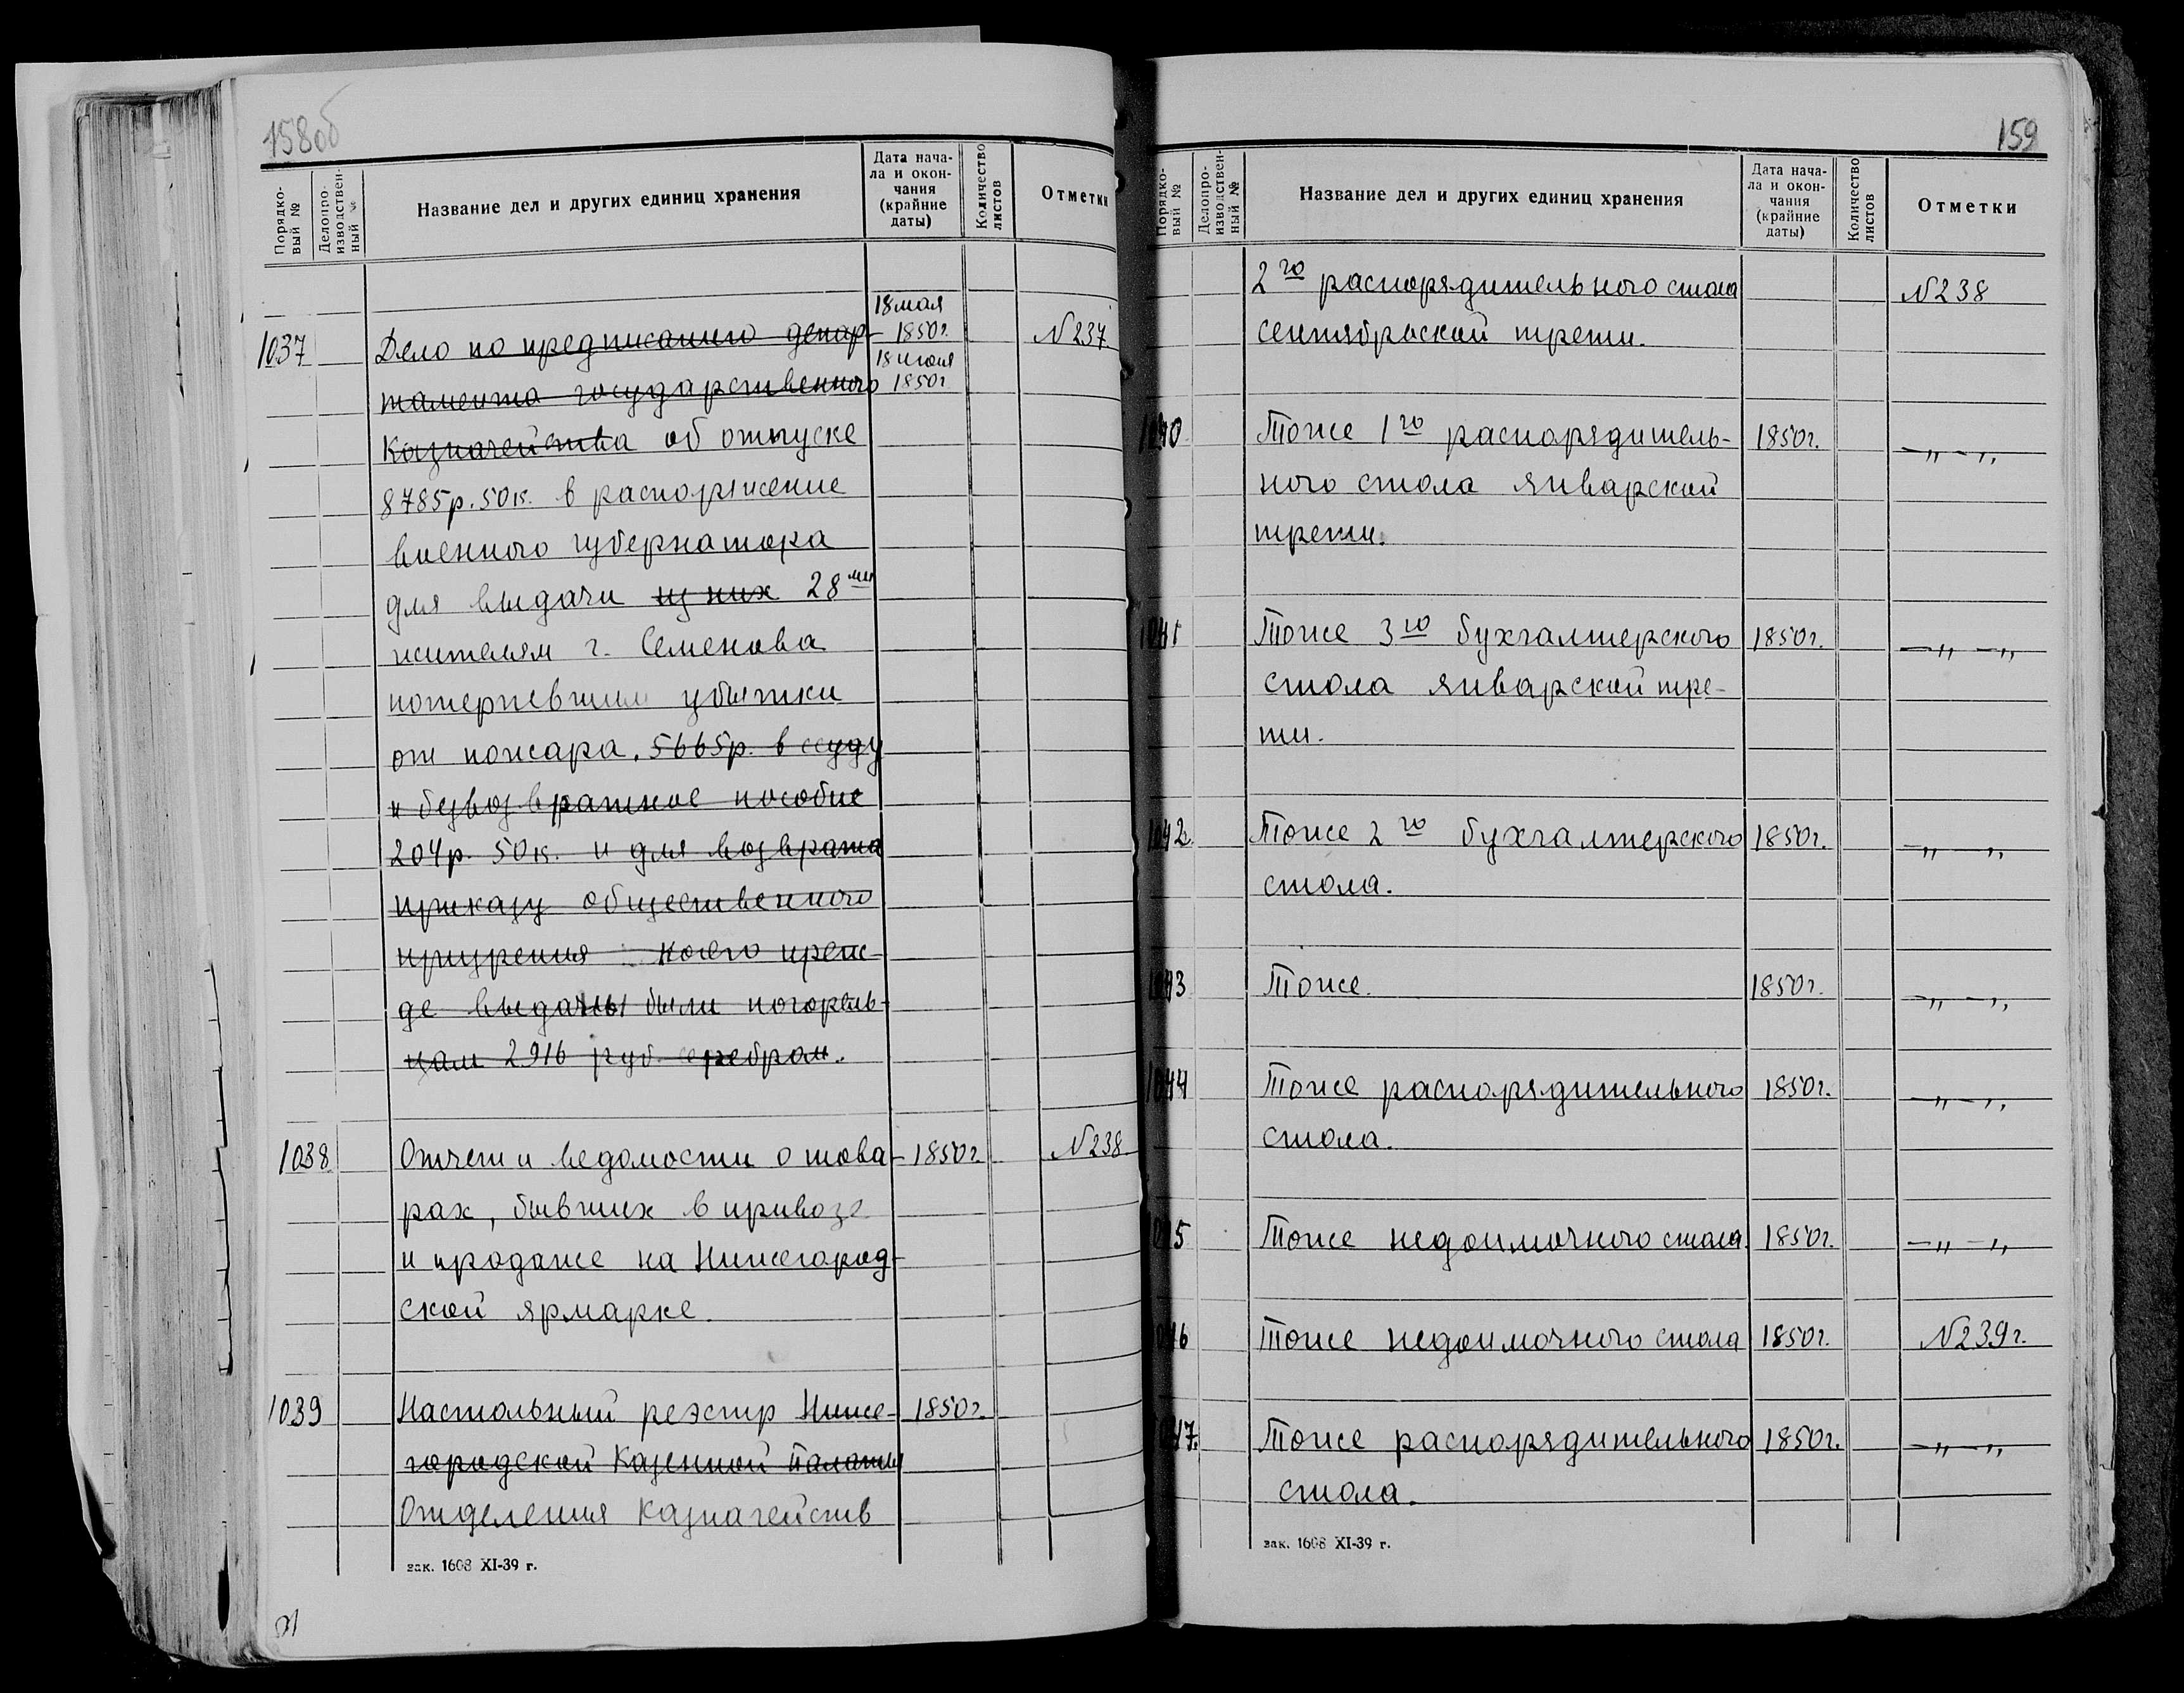 158об
Порядко-
вый №
Делопро-
изводствен-
ный №
Название дел и других единиц хранения
Дата нача-
ла и окон-
чания
(крайние
даты)
Количество
листов
Отметки
1037 Дело по предписанию депар- 18 мая 1850г. № 237.
тамента государственного 18 июля 1850г
Казначейства об отпуске
8785р. 50к. в распоряжение
военного губернатора
для выдачи из них 28ми
жителям г. Семенова
потерпевшим убытки
от пожара. 5665р. в ссуду
и безвозвратное пособие
204р. 50к. и для возврата
приказу общественного
призрения коего преж-
де выданы были погорель-
цам 2916 руб. серебром.
1038 Отчет и ведомости о това- 1850г. № 238.
рах, бывших в привозе
и продаже на Нижегород-
ской ярмарке.
1039 Настольный реэстр Ниже- 1850г.
городской Казенной Палаты
Отделения Казначейств
зак. 1608 XI-39 г.
159
Порядко-
вый №
Делопро-
изводствен-
ный №
Название дел и других единиц хранения
Дата нача-
ла и окон-
чания
(крайние
даты)
Количество
листов
Отметки
2го распорядительного стола № 238
сентябрьской трети.
1040 Тоже 1го распорядитель- 1850г. —„—„
ного стола январской
трети.
1041 Тоже 3го бухгалтерского 1850г. —„—„
стола январской тре-
ти.
1042. Тоже 2го бухгалтерского 1850г. —„—„
стола.
1043 Тоже. 1850г. —„—„
1044 Тоже распорядительного 1850г. —„—„
стола.
1045 Тоже недоимочного стола. 1850г. —„—„
1046 Тоже недоимочного стола 1850г. № 239г.
1047. Тоже распорядительного 1850г. —„—„
стола.
зак. 1608 XI-39 г.